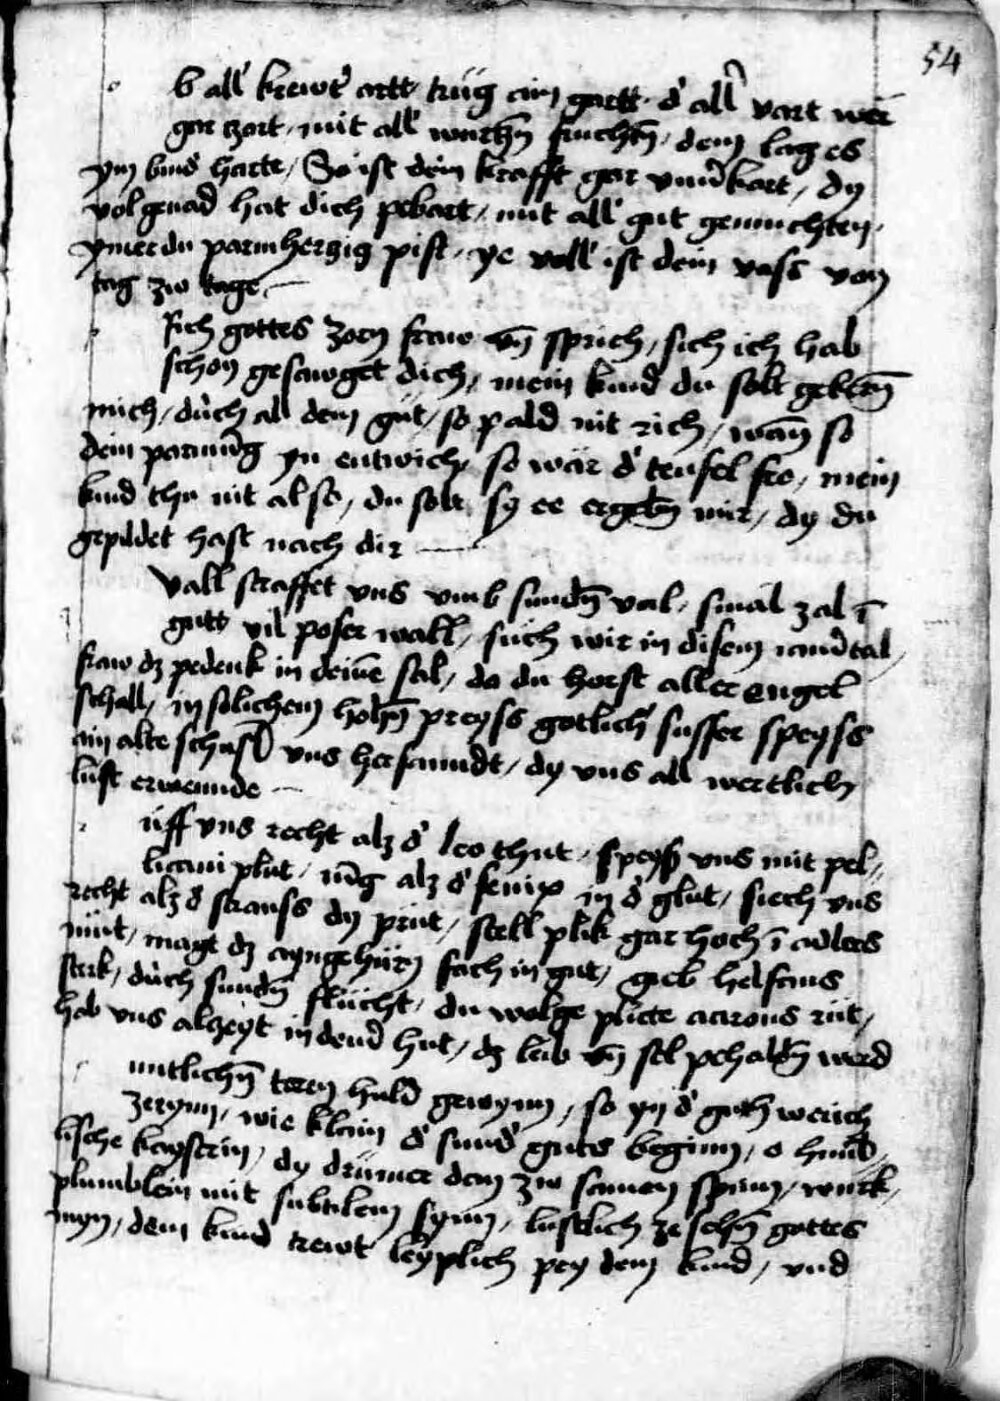 54
b all' krewt' artt trug ain gartt d' all' vart wer
gar zart, mit all' wurtzn̄ fruchtn̄, dem lag es
ym vnd' harte, So ist dein krafft gar vnu'kart, dy
vol genad hat dich pebart, mit all' gut genuchten,
ymer du parmherzig pist, ye voll' ist dein vass von
tag zw tage
sich gottes zorn fraw vn̄ sprich, sich ich hab
schon gesawget dich, mein kind du solt gebern̄
mich, durch all dem gut, so pald nit rich, wan̄ so
dein parmu'g yn entwich, so wär d' teufel fro, mein
kind thu nit also, du solt sy ee ergebn̄ mir, dy du
gepildet hast nach dir
vall straffet vns vmb sundn̄ val, smal zal ī
gutt vil poser wall, such wir in disem iamertal,
fraw dz pedenk in deinē sal, da du horst aller engel
schall, in solichem hohn̄ preyss gotlich' susser speyss
ain alte schussl vns her sanndt, dy vns all wertlich
lust erwennde
üff vns recht alz d' leo thut, speyß vns mit pel„
licani plut, iūg alz d' fenix in d' glut, siech vns
recht alz d' strauss dy prut, stell plik gar hoch ī adlers
mut, magt dz ayngehürn fach in gut, gieb helfants
sterk, durch sundn̄ flücht, du wolge plüete aarons rüt,
hab vns alzeyt in dein' hut, dz leib vn̄ sel pehaldn̄ werd
mitlichn̄ teren huld gewynn, so yn d' guth werich
zerynn, wie klain d' sund' guts beginn, o himel„
lische kayserin, dy drümer dem zw samen spinn, würk,
plümblein mit subtilem synn, lustlich ze sehn̄ gottes
myn, dein kind trewt leyplich pey dem kind, vnd